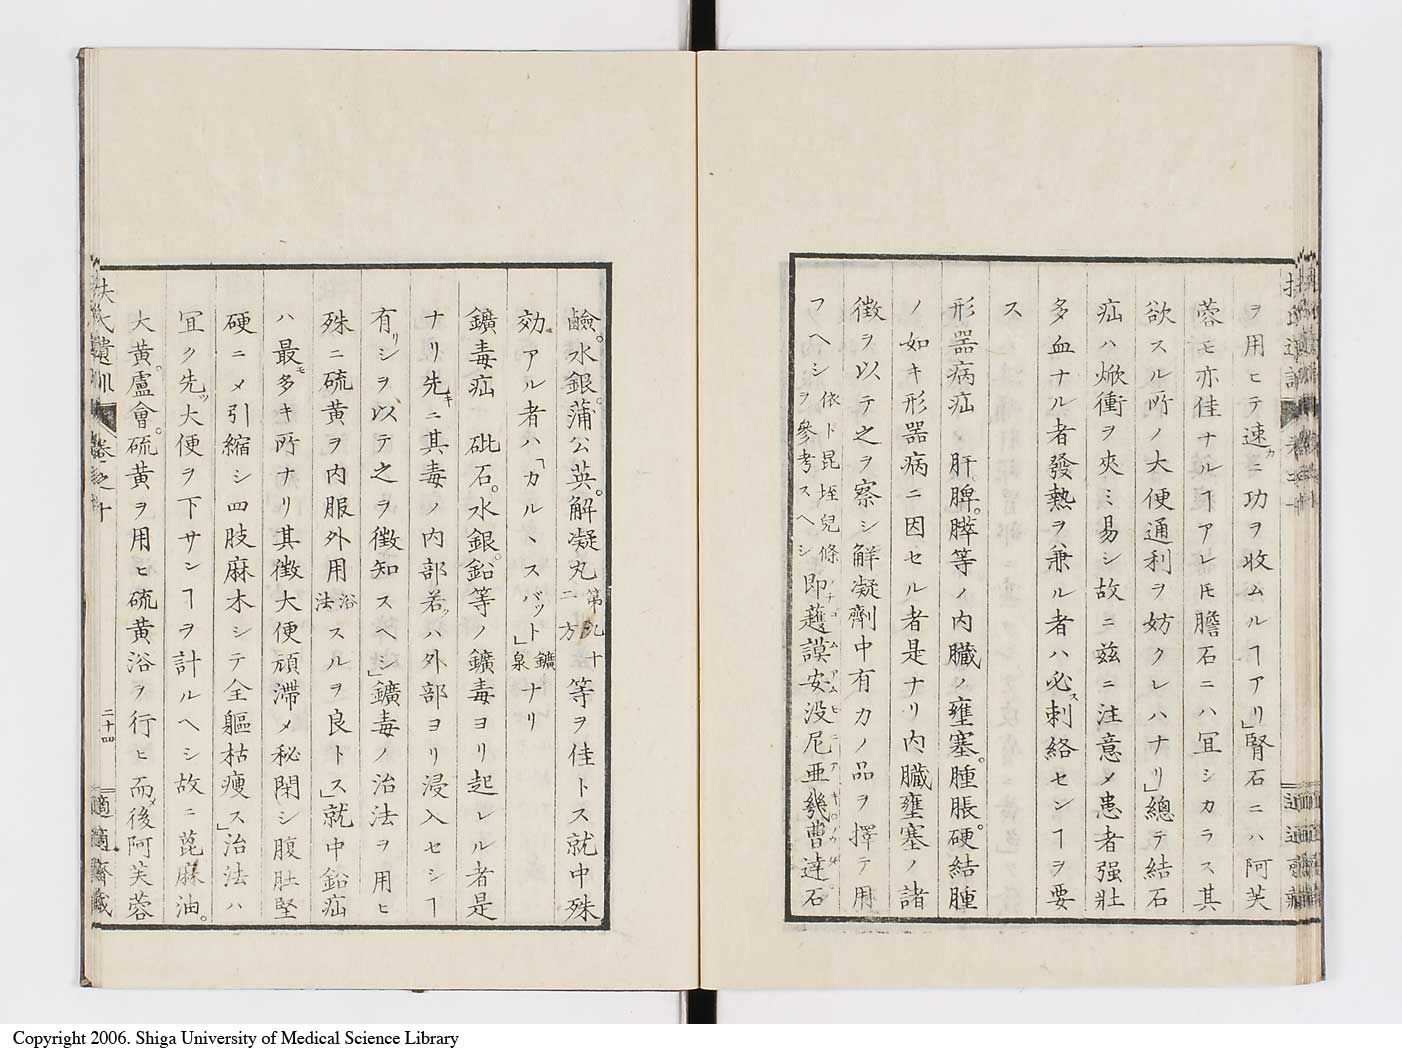 ヲ用ヒテ速カニ功ヲ收ムルヿアリ」腎石ニハ阿芙
蓉モ亦佳ナルヿアレ𪜈膽石ニハ冝シカラス其
欲スル所ノ大便通利ヲ妨クレハナリ」總テ結石
疝ハ焮衝ヲ夾ミ易シ故ニ玆ニ注意メ患者强壯
多血ナル者發熱ヲ兼ル者ハ必ス刺絡センヿヲ要
ス
形器病疝 肝。脾。膵等ノ内臓ノ壅塞。腫脹。硬結腫
ノ如キ形器病ニ因セル者是ナリ内臓壅塞ノ諸
徴ヲ以テ之ヲ察シ觧凝劑中有力ノ品ヲ擇テ用
フヘシ 依卜昆垤兒條ヲ參考スヘシ 即謨安没尼亜幾曹達石
鹼。水銀。蒲公英。解凝丸 第九十二方 等ヲ佳トス就中殊
効アル者ハ「カルヽスバット」鑛泉ナリ
鑛毒疝 砒石。水銀。鉛等ノ鑛毒ヨリ起レル者是
ナリ先キニ其毒ノ内部若ッハ外部ヨリ浸入セシヿ
有リシヲ以テ之ヲ徴知スヘシ」鑛毒ノ治法ヲ用ヒ
殊ニ硫黄ヲ内服外用 浴法 スルヲ良トス」就中鉛疝
ハ最モ多キ所ナリ其徴大便頑滞メ秘閉シ腹肚堅
硬ニメ引縮シ四肢麻木シテ全軀枯痩ス」治法ハ
冝ク先ッ大便ヲ下サンヿヲ計ルヘシ故ニ蓖麻油。
大黄。盧會。硫黄ヲ用ヒ硫黄浴ヲ行ヒ而メ後阿芙蓉
扶氏遺訓 卷之十 二十四 適適齋藏